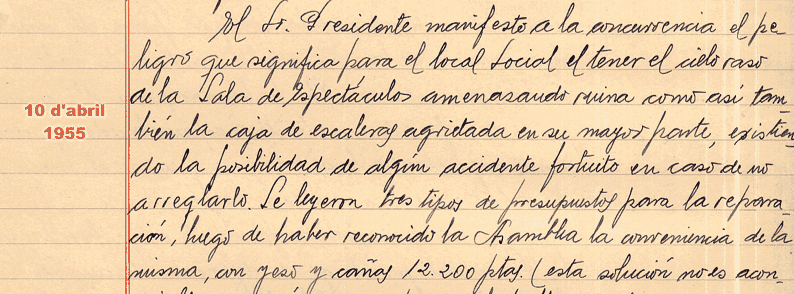 El Sr. Presidente manifestó a la concurrencia el pe-
ligro que significa para el local Social el tener el cielo raso
de la Sala de Espectáculos amenasando ruina como así tam-
bién la caja de escaleras agrietada en su mayor parte, existien-
do la posibilidad de algún accidente fortuito en caso de no
arreglarlo. Se leyeron tres tipos de presupuestos para la repara-
ción, luego de haber reconocido la Asamblea la conveniencia de la
misma, con yeso y cañas 12.200 ptas. (esta solución no es acon-
10 d'abril
1955